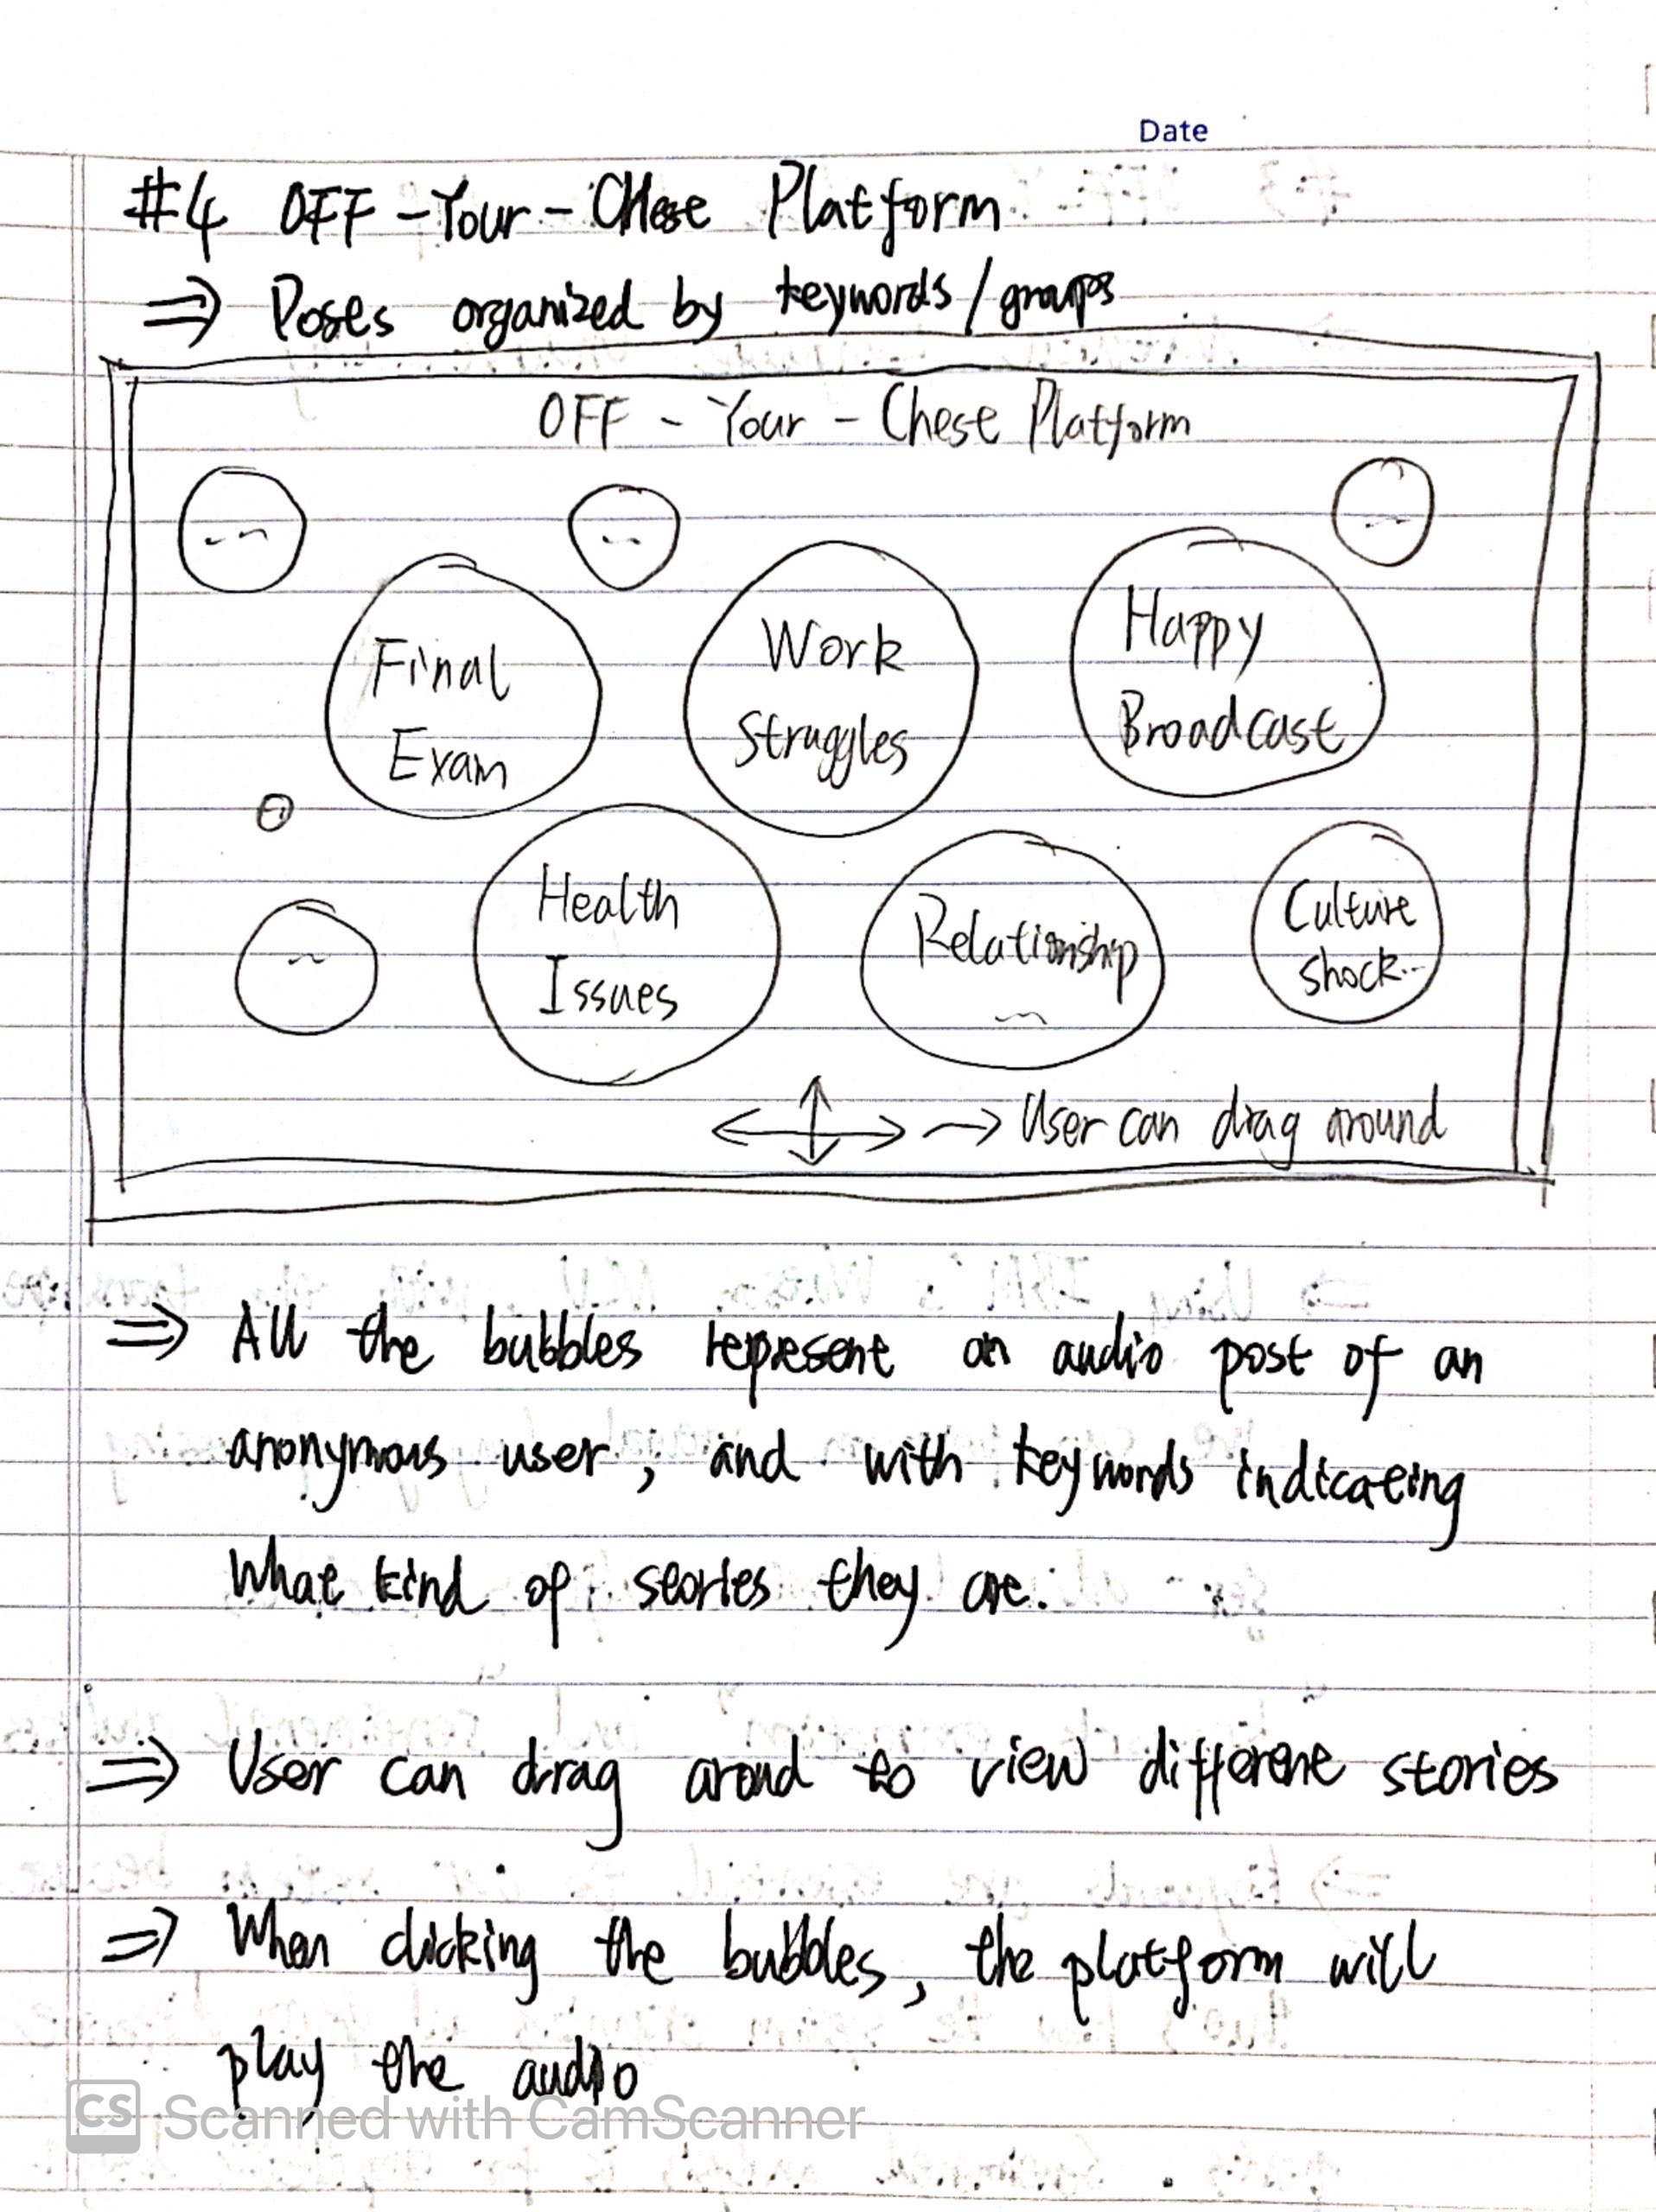 Date
#4 OFF-Your-Chest Platform
⇒ Posts organized by keywords/groups
OFF - Your - Chest Platform
Final
Exam
Work
Struggles
Happy
Broadcast
Health
Issues
Relationship
Culture
shock..
→ User can drag around
⇒ All the bubbles represent an audio post of an
anonymous user, and with keywords indicating
what kind of stories they are.
⇒ User can drag aroud to view different stories
⇒ When clicking the bubbles, the platform will
play the audio
CS Scanned with CamScanner